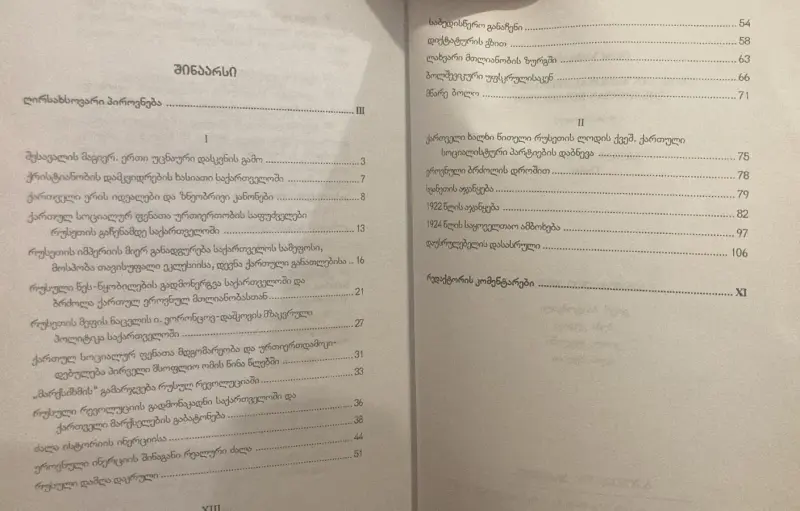 შინაარსი
ღირსახსოვარი პიროვნება ... III
I
შესავალის მაგიერ. ერთი უცნაური დასკვნის გამო ... 3
ქრისტიანობის დამკვიდრების ხასიათი საქართველოში ... 7
ქართველი ერის იდეალები და ზნეობრივი კანონები ... 8
ქართულ სოციალურ ფენათა ურთიერთობის საფუძვლები
რუსეთის გაჩენამდე საქართველოში ... 13
რუსეთის იმპერიის მიერ განადგურება საქართველოს სამეფოსი,
მოსპობა თავისუფალი ეკლესიისა, დევნა ქართული განათლებისა .. 16
რუსული წეს-წყობილების გადმონერგვა საქართველოში და
ბრძოლა ქართულ ეროვნულ მთლიანობასთან ... 21
რუსეთის მეფის ნაცვლის ი. ვორონცოვ-დაშკოვის მზაკვრული
პოლიტიკა საქართველოში ... 27
ქართულ სოციალურ ფენათა მდგომარეობა და ურთიერთდამოკი-
დებულება პირველი მსოფლიო ომის წინა წლებში ... 31
„მარქსიზმის" გამარჯვება რუსულ რევოლუციაში ... 33
რუსული რევოლუციის გადმონაკადნი საქართველოში და
ქართველი მარქსელების გაბატონება ... 36
ძალა ისტორიის ინერციისა ... 38
ეროვნული ინერციის შინაგანი რეალური ძალა ... 44
რუსული დამღა დაკრული ... 51
XIII
საბედისწერო განაჩენი ... 54
დიქტატურის გზით ... 58
ლახვარი მთლიანობის ზურგში ... 63
ბოლშევიკური უფსკრულისაკენ ... 66
მწარე ბოლო ... 71
II
ქართველი ხალხი წითელი რუსეთის ლოდის ქვეშ. ქართული
სოციალისტური პარტიების დაბნევა ... 75
ეროვნული ბრძოლის დროშით ... 78
სვანეთის აჯანყება ... 79
1922 წლის აჯანყება ... 82
1924 წლის საყოველთაო ამბოხება ... 97
დაუსრულებელის დასასრული ... 106
რედაქტორის კომენტარები ... XI